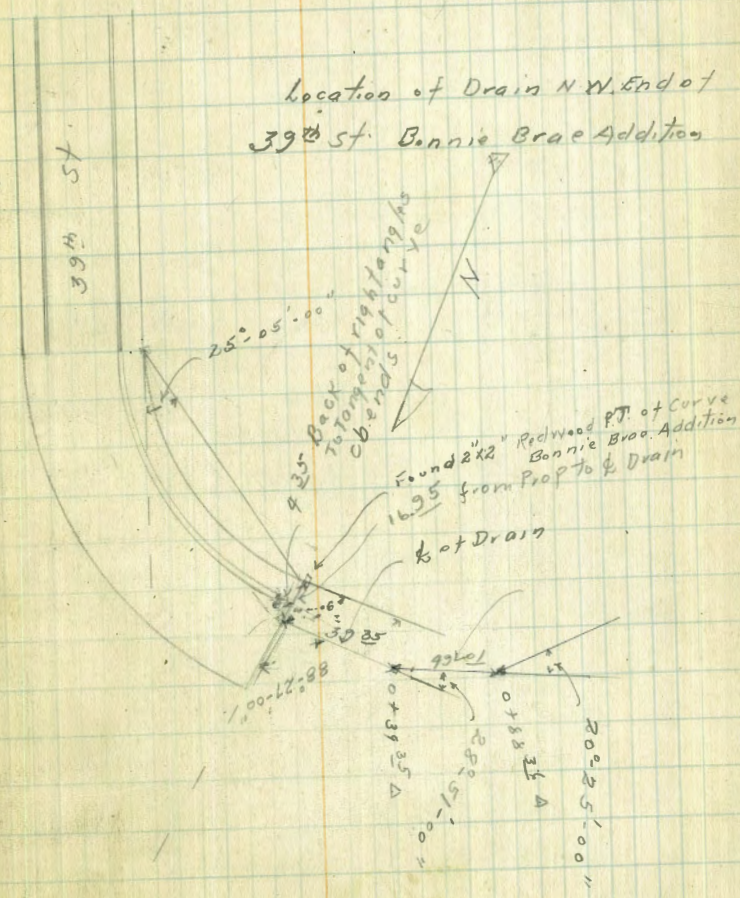 Location of Drain N W. End of
39th St. Bonnie Brae Addition
39th St.
N
25°-05'-00"
4 35 Back of right angles
To Tangent of curve
cb. ends.
Found 2"x2" Redwood P.T. of Curve
Bonnie Brae Addition
16.95 from Prop to ℄ Drain
℄ of Drain
39 35
88°-27'-00"
0+39 35 Δ
28°-51'-00"
0+88 36 Δ
20°-25'-00"